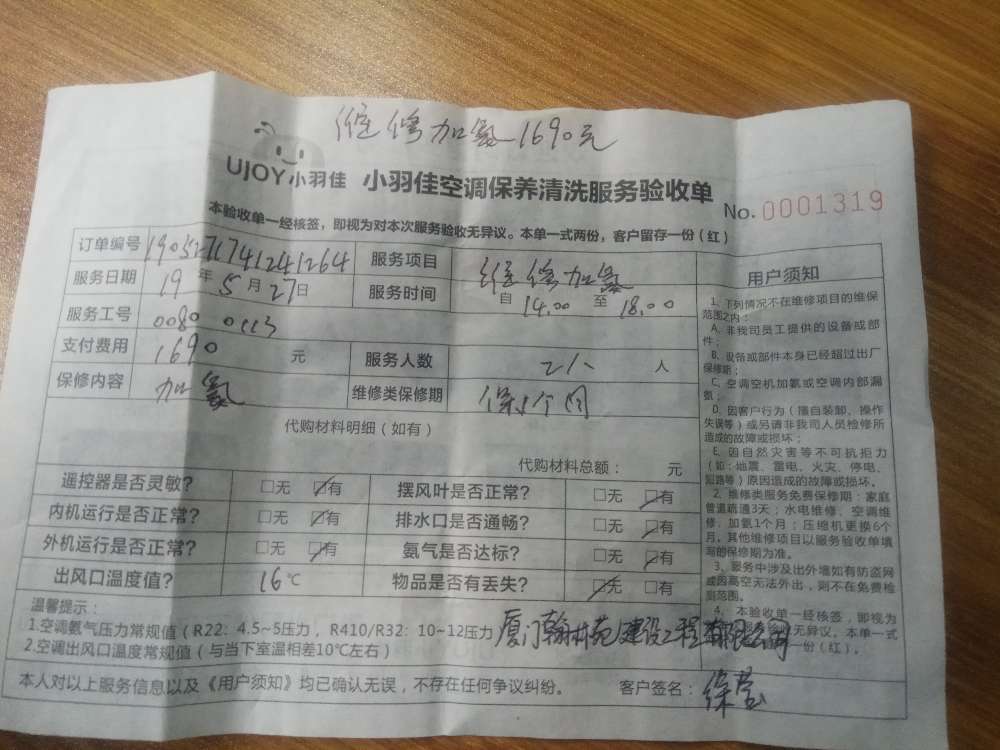 维修加氨1690元
UJOY小羽佳 小羽佳空调保养清洗服务验收单
No.0001319
本验收单一经核签，即视为对本次服务验收无异议。本单一式两份，客户留存一份（红）
订单编号 190527174124 1264 服务项目 维修加氨
服务日期 19年5月27日 服务时间 自14.00至18.00
服务工号 0080 0113
支付费用 1690元 服务人数 2人 人
保修内容 加氨 维修类保修期 保1个月
代购材料明细（如有）
代购材料总额： 元
遥控器是否灵敏? 无 有 摆风叶是否正常? 无 有
内机运行是否正常? 无 有 排水口是否通畅? 无 有
外机运行是否正常? 无 有 氨气是否达标? 无 有
出风口温度值? 16℃ 物品是否有丢失? 无 有
温馨提示：
1.空调氨气压力常规值（R22：4.5~5压力，R410/R32：10~12压力
2.空调出风口温度常规值（与当下室温相差10℃左右）
厦门翰林苑建设工程有限公司
本人对以上服务信息以及《用户须知》均已确认无误，不存在任何争议纠纷。 客户签名：徐莹
用户须知
1、下列情况不在维修项目的维保
范围之内：
A、非我司员工提供的设备或部
件；
B、设备或部件本身已经超过出厂
保修期；
C、空调空机加氨或空调内部漏
氨；
D、因客户行为（擅自装卸、操作
失误等）或另请非我司人员检修所
造成的故障或损坏；
E、因自然灾害等不可抗拒力
（如：地震、雷电、火灾、停电、
短路等）原因造成的故障或损坏。
2、维修类服务免费保修期：家庭
管道疏通3天；水电维修、空调维
修、加氨1个月；压缩机更换6个
月。其他维修项目以服务验收单填
写的保修期为准。
3、服务中涉及出外墙如有防盗网
或因高空无法外出，则不在免费检
测范围。
4、本验收单一经核签，即视为
服务验收无异议。本单一式
一份（红）。